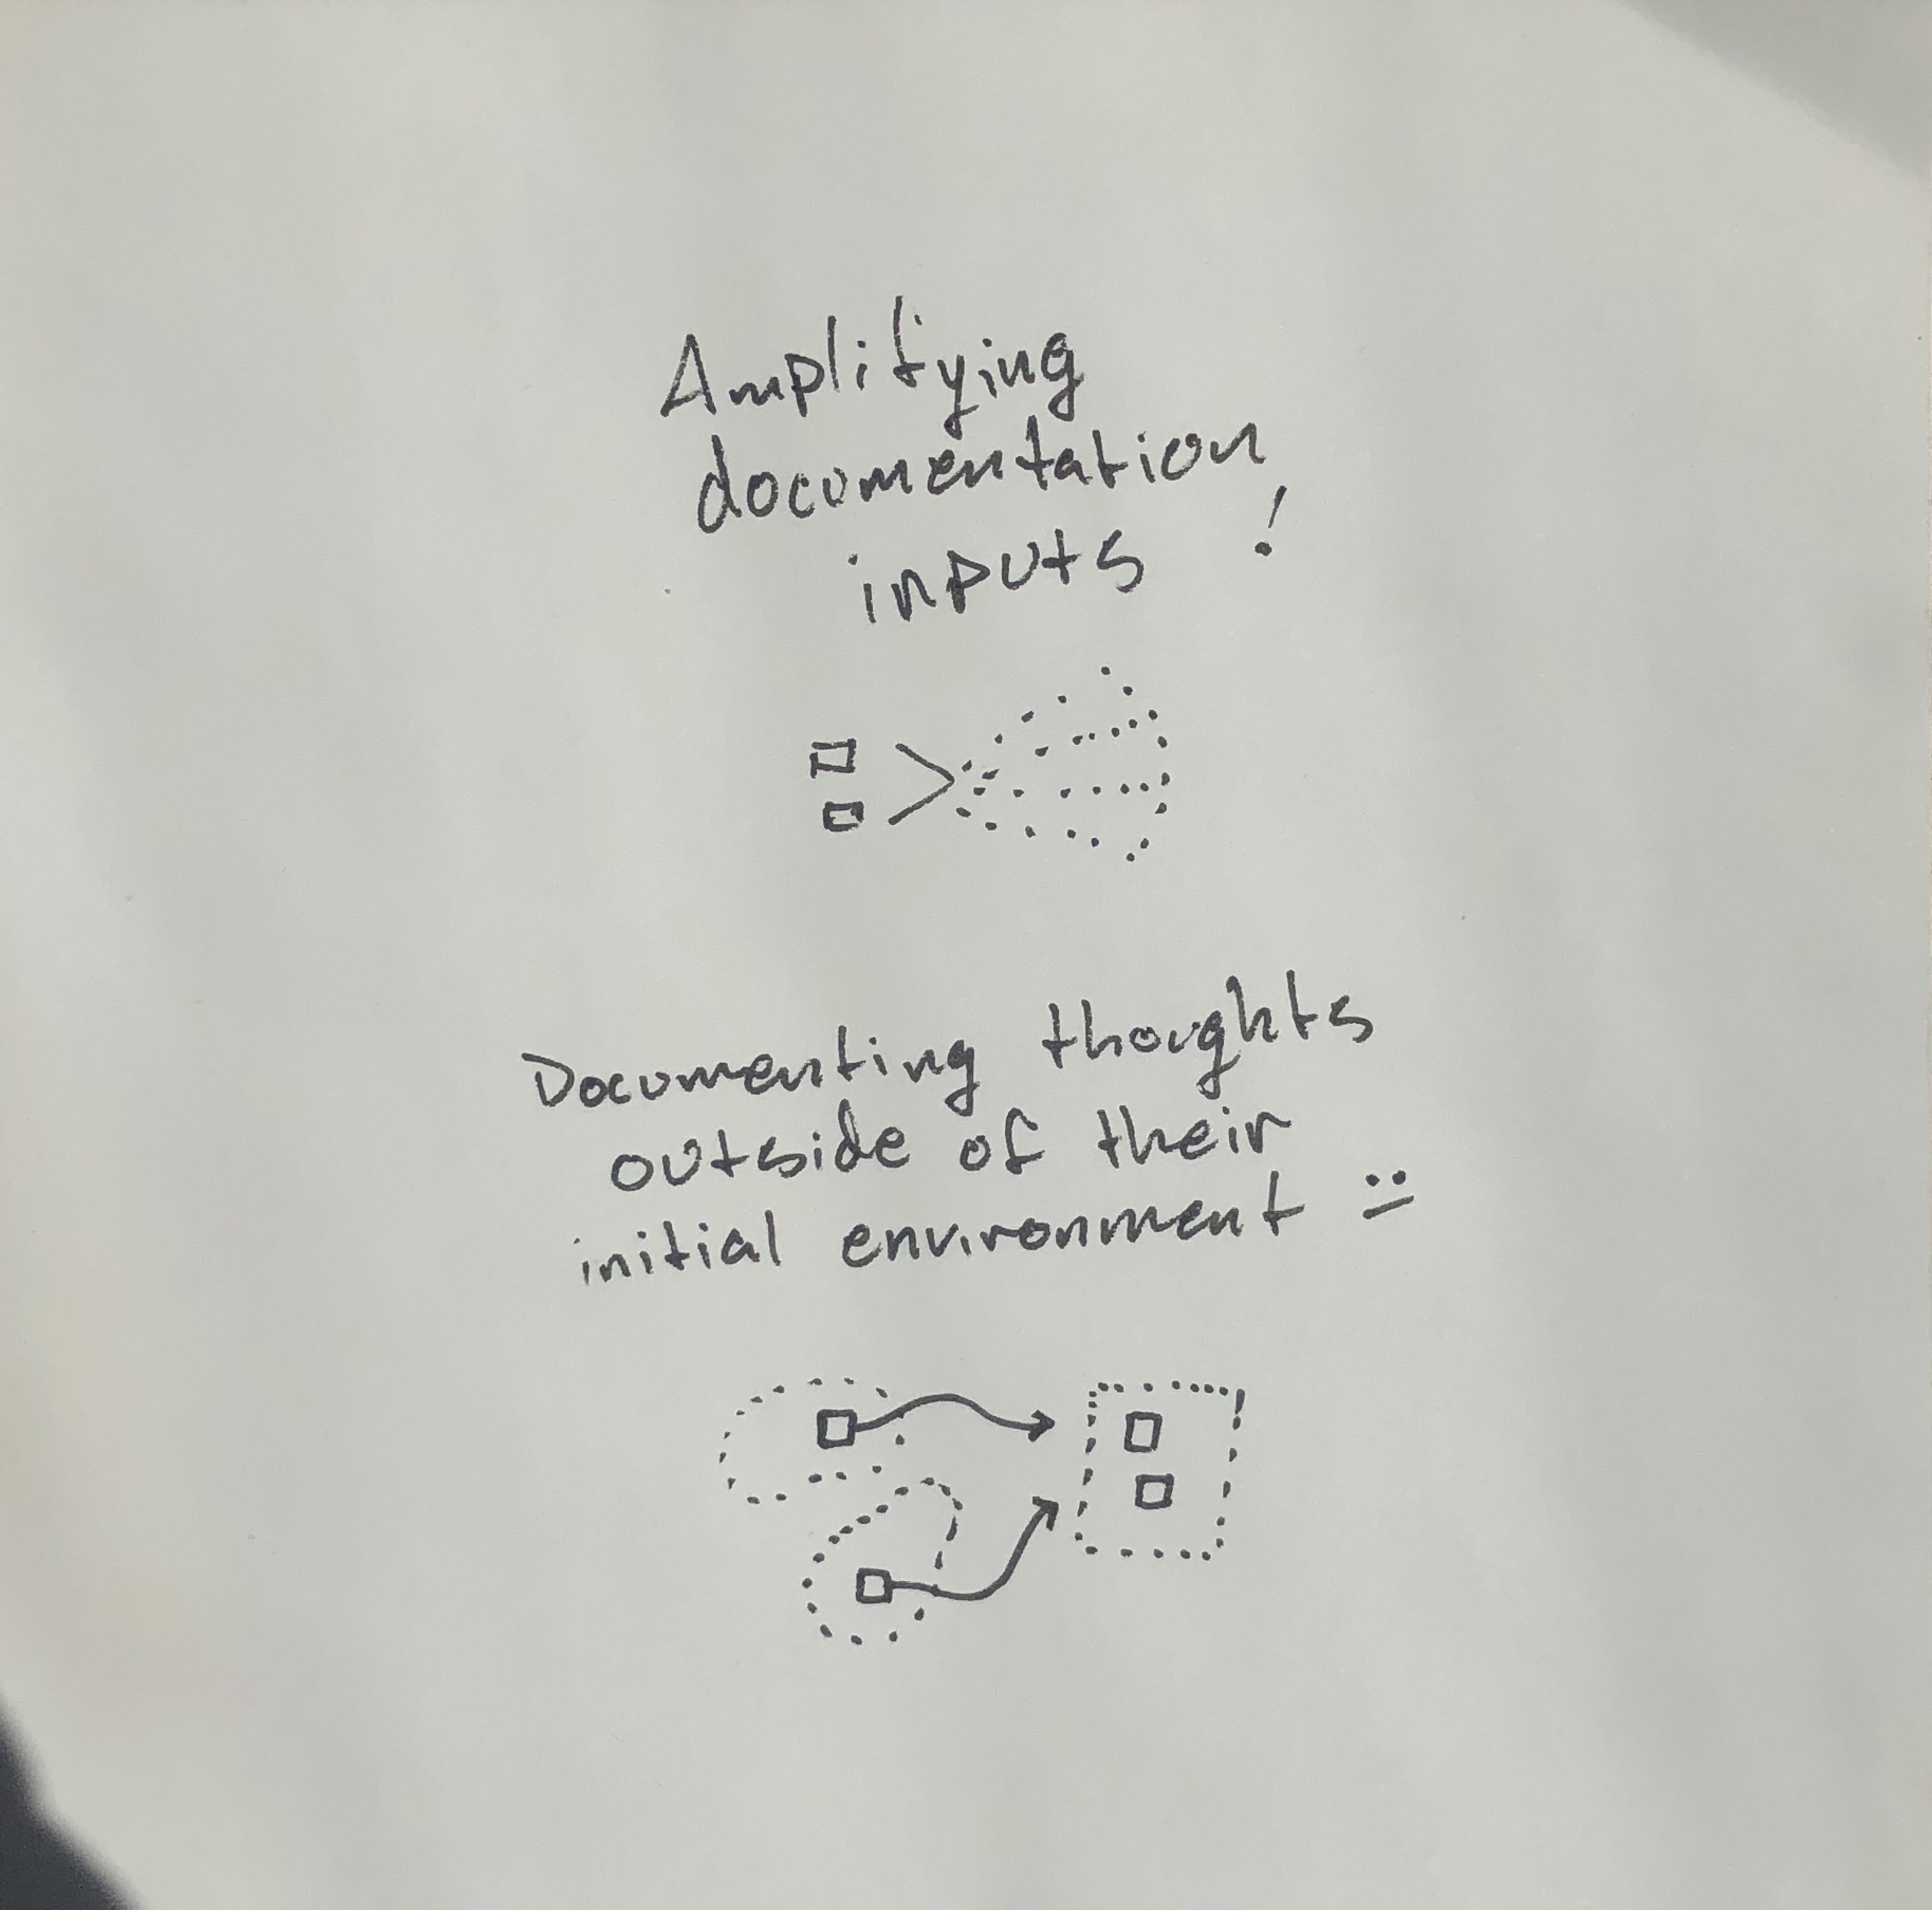 Amplifying
documentation
inputs !
Documenting thoughts
outside of their
initial environment